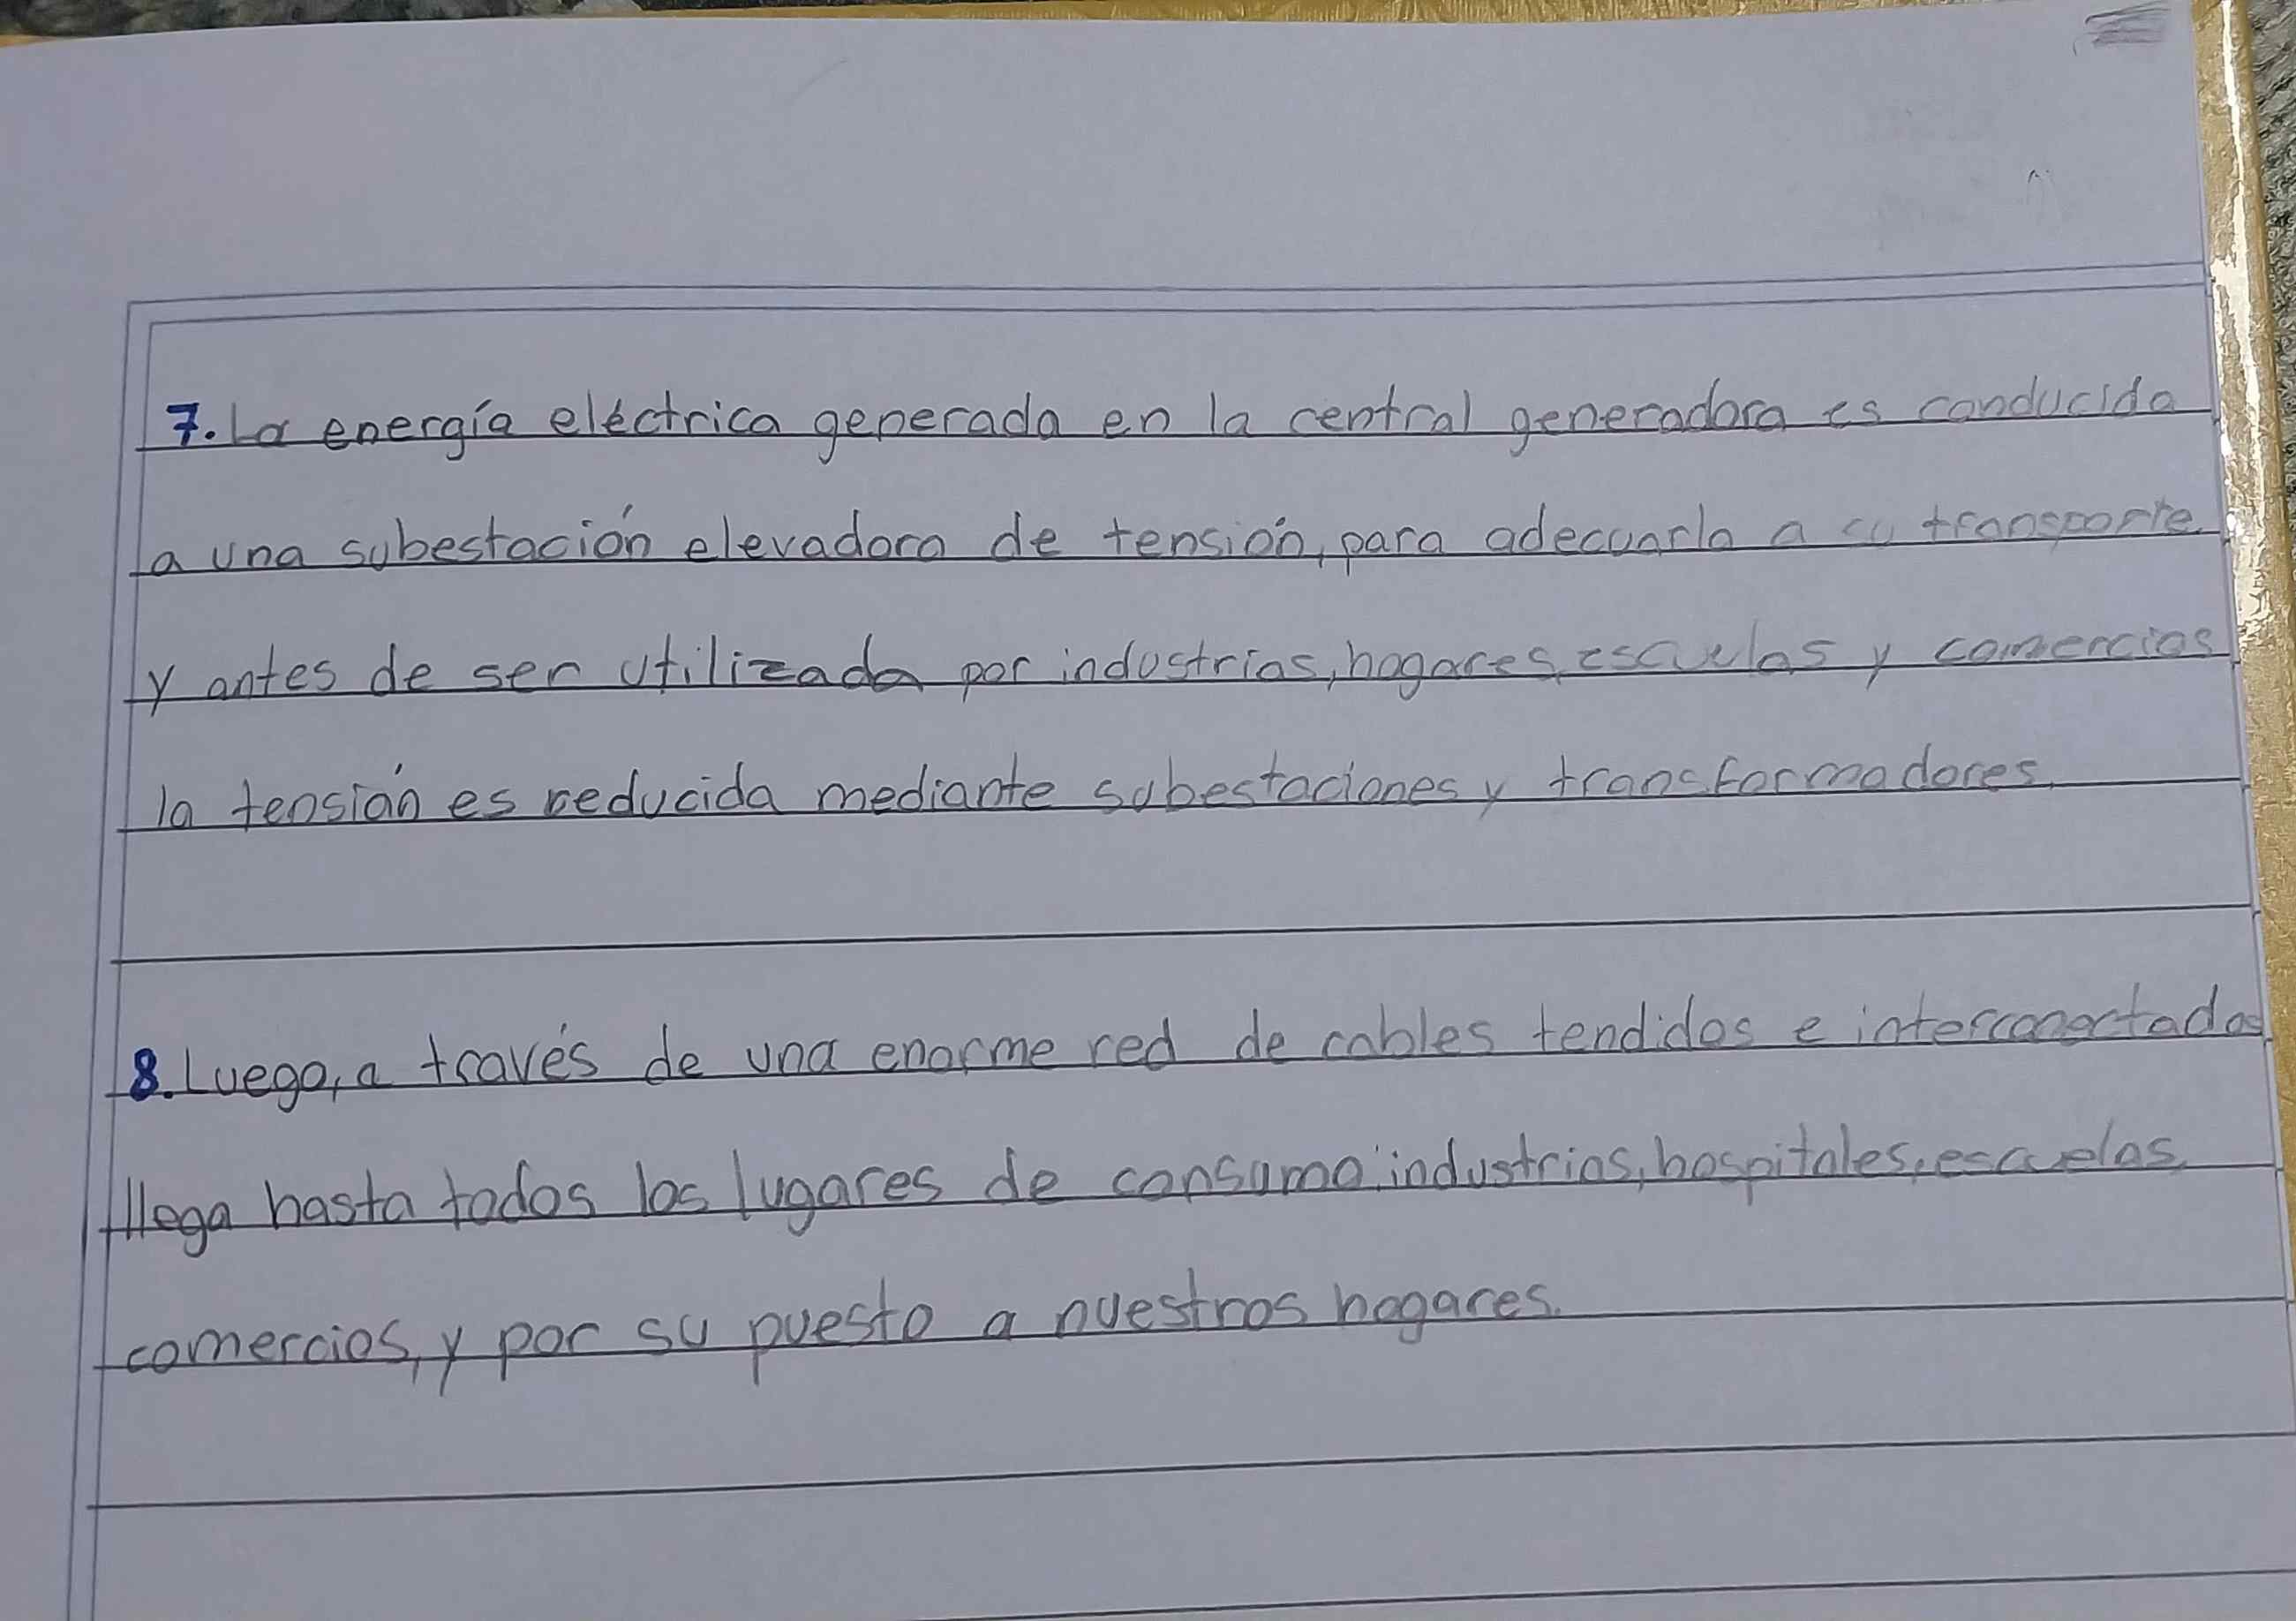 7. La energía eléctrica generada en la central generadora es conducida
a una subestación elevadora de tensión, para adecuarla a su transporte
y antes de ser utilizada por industrias, hogares, escuelas y comercios
la tensión es reducida mediante subestaciones y transformadores.
8. Luego, a través de una enorme red de cables tendidos e interconectados
llega hasta todos los lugares de consumo: industrias, hospitales, escuelas,
comercios, y por su puesto a nuestros hogares.